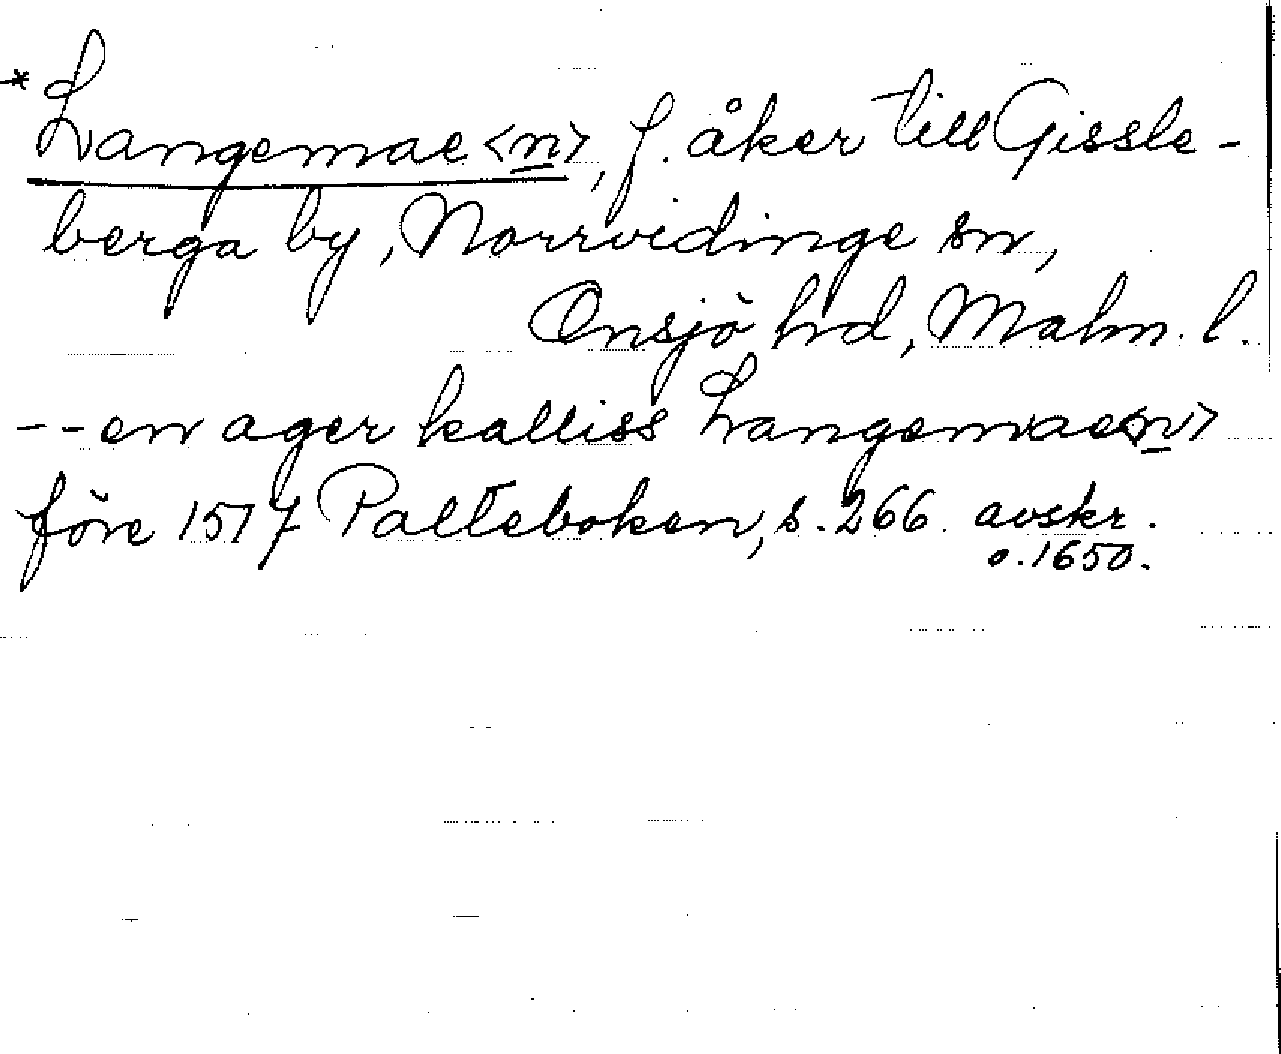 *Langemae<n>, f. åker till Gissle-
berga by, Norrvidinge sn,
Onsjö hd, Malm. l.
-- en ager kalliss Langemae<n>
före 1517 Palteboken, s. 266. avskr.
o. 1650.